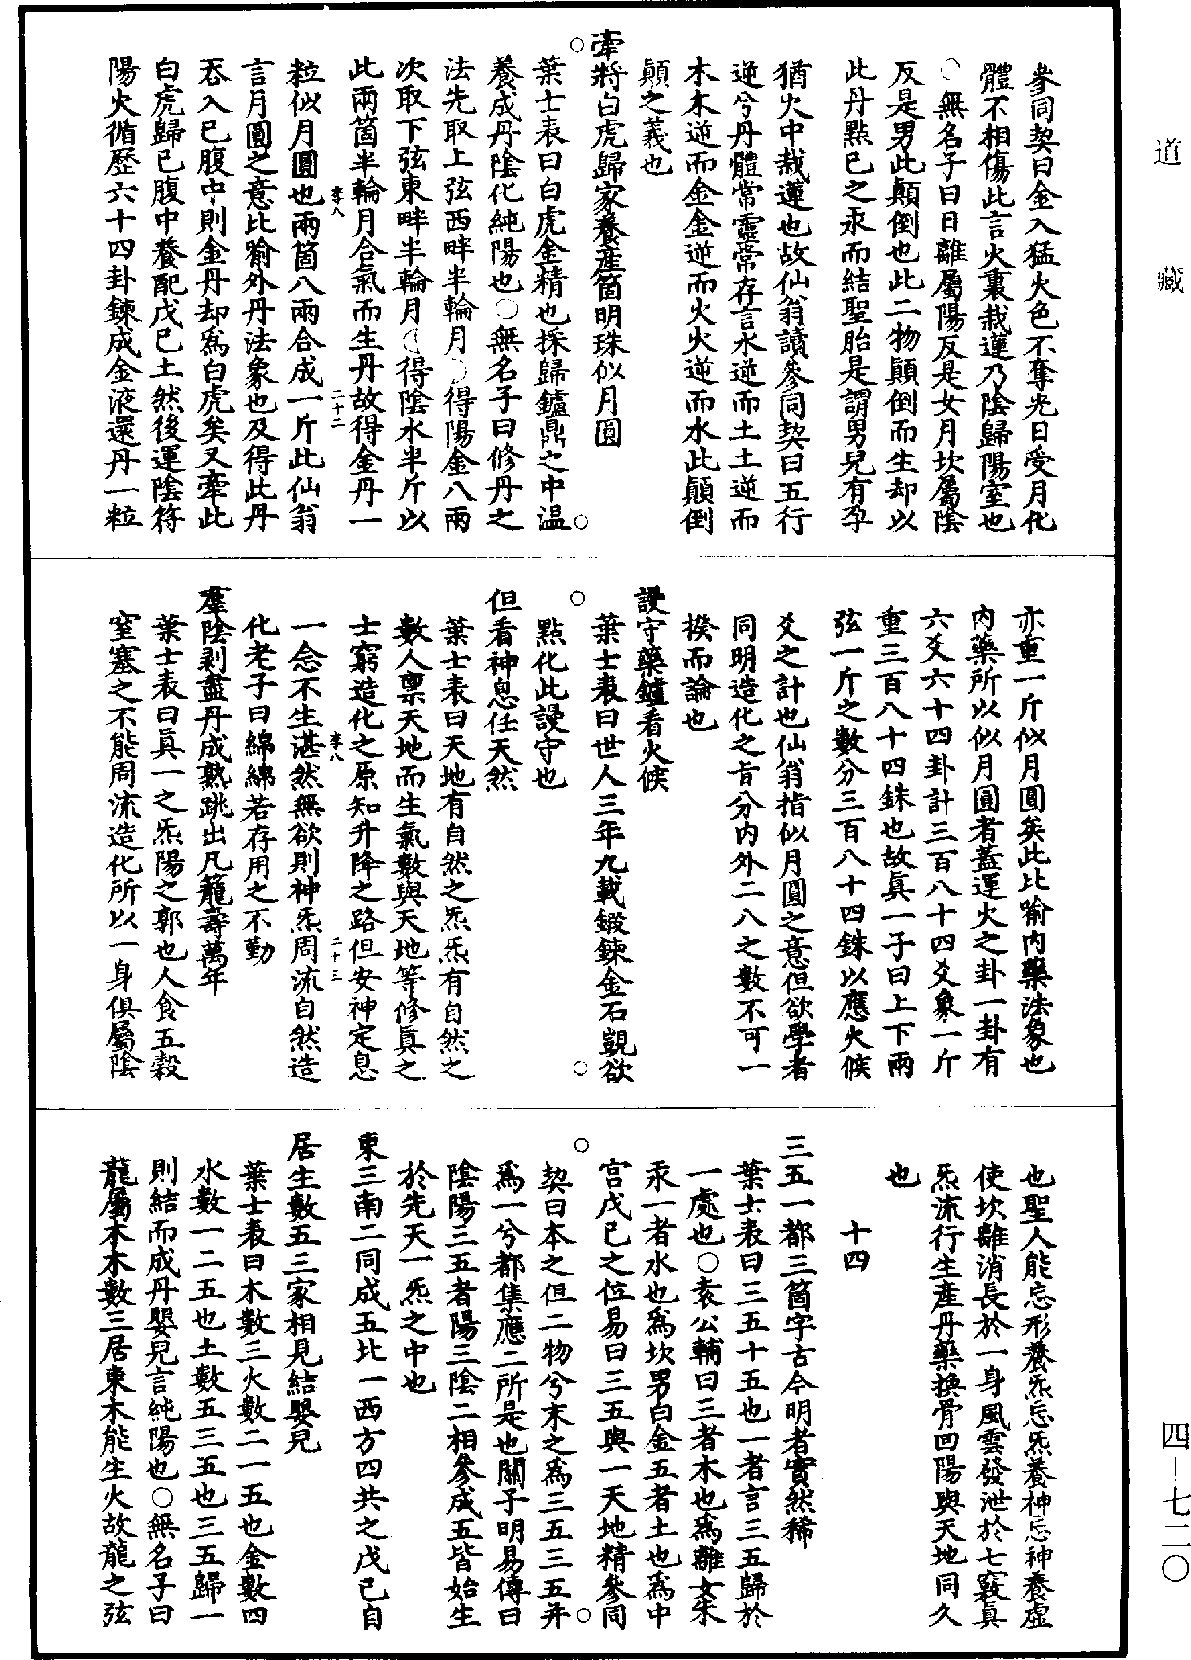 道藏
參同契曰金入猛火色不奪光日受月化
體不相傷此言火裏栽蓮乃陰歸陽室也
○無名子曰日離屬陽反是女月坎屬陰
反是男此顛倒也此二物顛倒而生却以
此丹點已之汞而結聖胎是謂男兒有孕
猶火中栽蓮也故仙翁讀參同契曰五行
逆兮丹體常靈常存言水逆而土土逆而
木木逆而金金逆而火火逆而水此顛倒
顛之義也
牽將白虎歸家養產箇明珠似月圓
葉士表曰白虎金精也採歸鑪鼎之中温
養成丹陰化純陽也○無名子曰修丹之
法先取上弦西畔半輪月得陽金八兩
次取下弦東畔半輪月得陰水半斤以
此兩箇半輪月合氣而生丹故得金丹一
李八 二十二
粒似月圓也兩箇八兩合成一斤此仙翁
言月圓之意比喻外丹法象也及得此丹
吞入已腹中則金丹却為白虎矣又牽此
白虎歸已腹中養配戊已土然後運陰符
陽火循歷六十四卦鍊成金液還丹一粒
亦重一斤似月圓矣此比喻内藥法象也
内藥所以似月圓者蓋運火之卦一卦有
六爻六十四卦計三百八十四爻象一斤
重三百八十四銖也故真一子曰上下兩
弦一斤之數分三百八十四銖以應火候
爻之計也仙翁指似月圓之意但欲學者
同明造化之旨分内外二八之數不可一
揆而論也
謾守藥鑪看火候
葉士表曰世人三年九載鍛鍊金石覬欲
點化此謾守也
但看神息任天然
葉士表曰天地有自然之炁炁有自然之
數人禀天地而生氣數與天地等修真之
士窮造化之原知升降之路但安神定息
李八 二十三
一念不生湛然無欲則神炁周流自然造
化老子曰綿綿若存用之不勤
羣陰剥盡丹成熟跳出凡籠壽萬年
葉士表曰真一之炁陽之郭也人食五穀
窒塞之不能周流造化所以一身俱屬陰
也聖人能忘形養炁忘炁養神忘神養虛
使坎離消長於一身風雲發泄於七竅真
炁流行生產丹藥換骨回陽與天地同久
也
十四
三五一都三箇字古今明者實然稀
葉士表曰三五十五也一者言三五歸於
一處也○袁公輔曰三者木也為離女朱
汞一者水也為坎男白金五者土也為中
宫戊已之位易曰三五與一天地精參同
契曰本之但二物兮末之為三五三五并
為一兮都集應二所是也關子明易傳曰
陰陽三五者陽三陰二相參成五皆始生
於先天一炁之中也
東三南二同成五北一西方四共之戊已自
居生數五三家相見結嬰兒
葉士表曰木數三火數二一五也金數四
水數一二五也土數五三五也三五歸一
則結而成丹嬰兒言純陽也○無名子曰
龍屬木木數三居東木能生火故龍之弦
四—七二〇